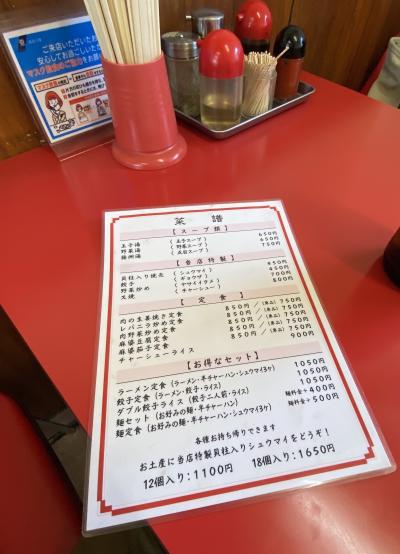 ご来店いただいたお
安心してお召しいただ
マスク飲食のご協力をお願
菜譜
【スープ類】
玉子湯 (玉子スープ) 650円
野菜湯 (野菜スープ) 650円
揚州湯 (五目スープ) 750円
【当店特製】
貝柱入り焼売 (シュウマイ) 450円
餃子 (ギョウザ) 450円
野菜炒め (ヤサイイタメ) 700円
叉焼 (チャーシュー) 800円
【定食】
肉の生姜焼き定食 850円/(単品)750円
レバニラ炒め定食 850円/(単品)750円
肉野菜炒め定食 850円/(単品)750円
麻婆豆腐定食 850円/(単品)750円
麻婆茄子定食 850円/(単品)750円
チャーシューライス 900円
【お得なセット】
ラーメン定食(ラーメン・半チャーハン・シュウマイ3ケ) 1050円
餃子定食(ラーメン・餃子・ライス) 1050円
ダブル餃子ライス(餃子二人前・ライス) 1050円
麺セット(お好みの麺・半チャーハン) 麺料金+400円
麺定食(お好みの麺・半チャーハン・シュウマイ3ケ) 麺料金+500円
各種お持ち帰りできます
お土産に当店特製貝柱入りシュウマイをどうぞ!
12個入り:1100円 18個入り:1650円